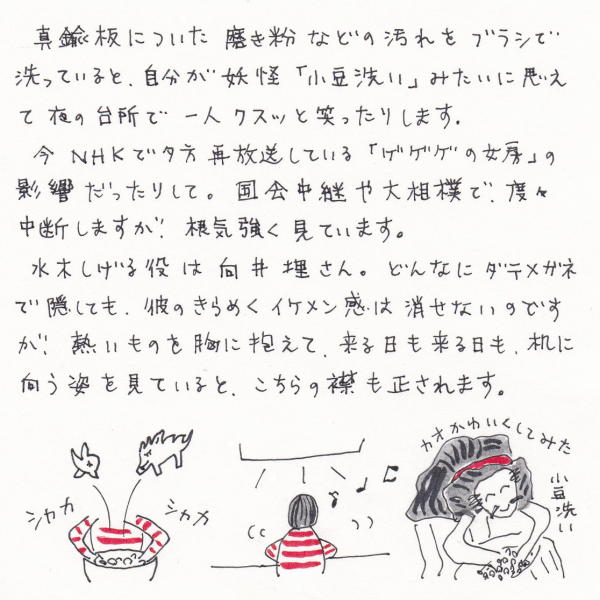 真鍮板についた磨き粉などの汚れをブラシで
洗っていると、自分が妖怪「小豆洗い」みたいに思え
て夜の台所で一人クスッと笑ったりします。
今NHKで夕方再放送している「ゲゲゲの女房」の
影響だったりして。国会中継や大相撲で、度々
中断しますが、根気強く見ています。
水木しげる役は向井理さん。どんなにダテメガネ
で隠しても、彼のきらめくイケメン感は消せないのです
が、熱いものを胸に抱えて、来る日も来る日も、机に
向う姿を見ていると、こちらの襟も正されます。
シャカ
シャカ
カオかわいくしてみた
小豆洗い